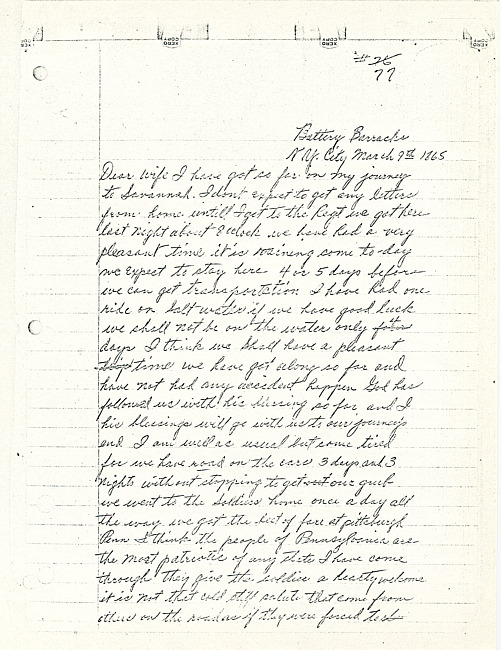 # 26
77
Battery Barracks
N.Y. City March 9th 1865
Dear wife I have got so far on my journey
to Savannah. I dont expect to get any letters
from home untill I get to the Regt we got here
last night about 8 oclock we have had a very
pleasant time it is raining some to-day
we expect to stay here 4 or 5 days before
we can get transportation I have had one
ride on salt water if we have good luck
we shall not be on the water only four
days I think we shall have a pleasant
time we have got along so far and
have not had any accident happen God has
followed us with his blessing so far and I
his blessings will go with us to our journeys
end I am well as usual but some tired
for we have road on the cars 3 days and 3
nights without stopping to get out our grub
we went to the soldiers home once a day all
the way we got the best of fare at pittburgh
Penn I think the people of Pennsylvania are
the most patriotic of any State I have come
through they give the soldier a hearty welcome
it is not that cold stiff salute that come from
others on the roads as if they were forced to